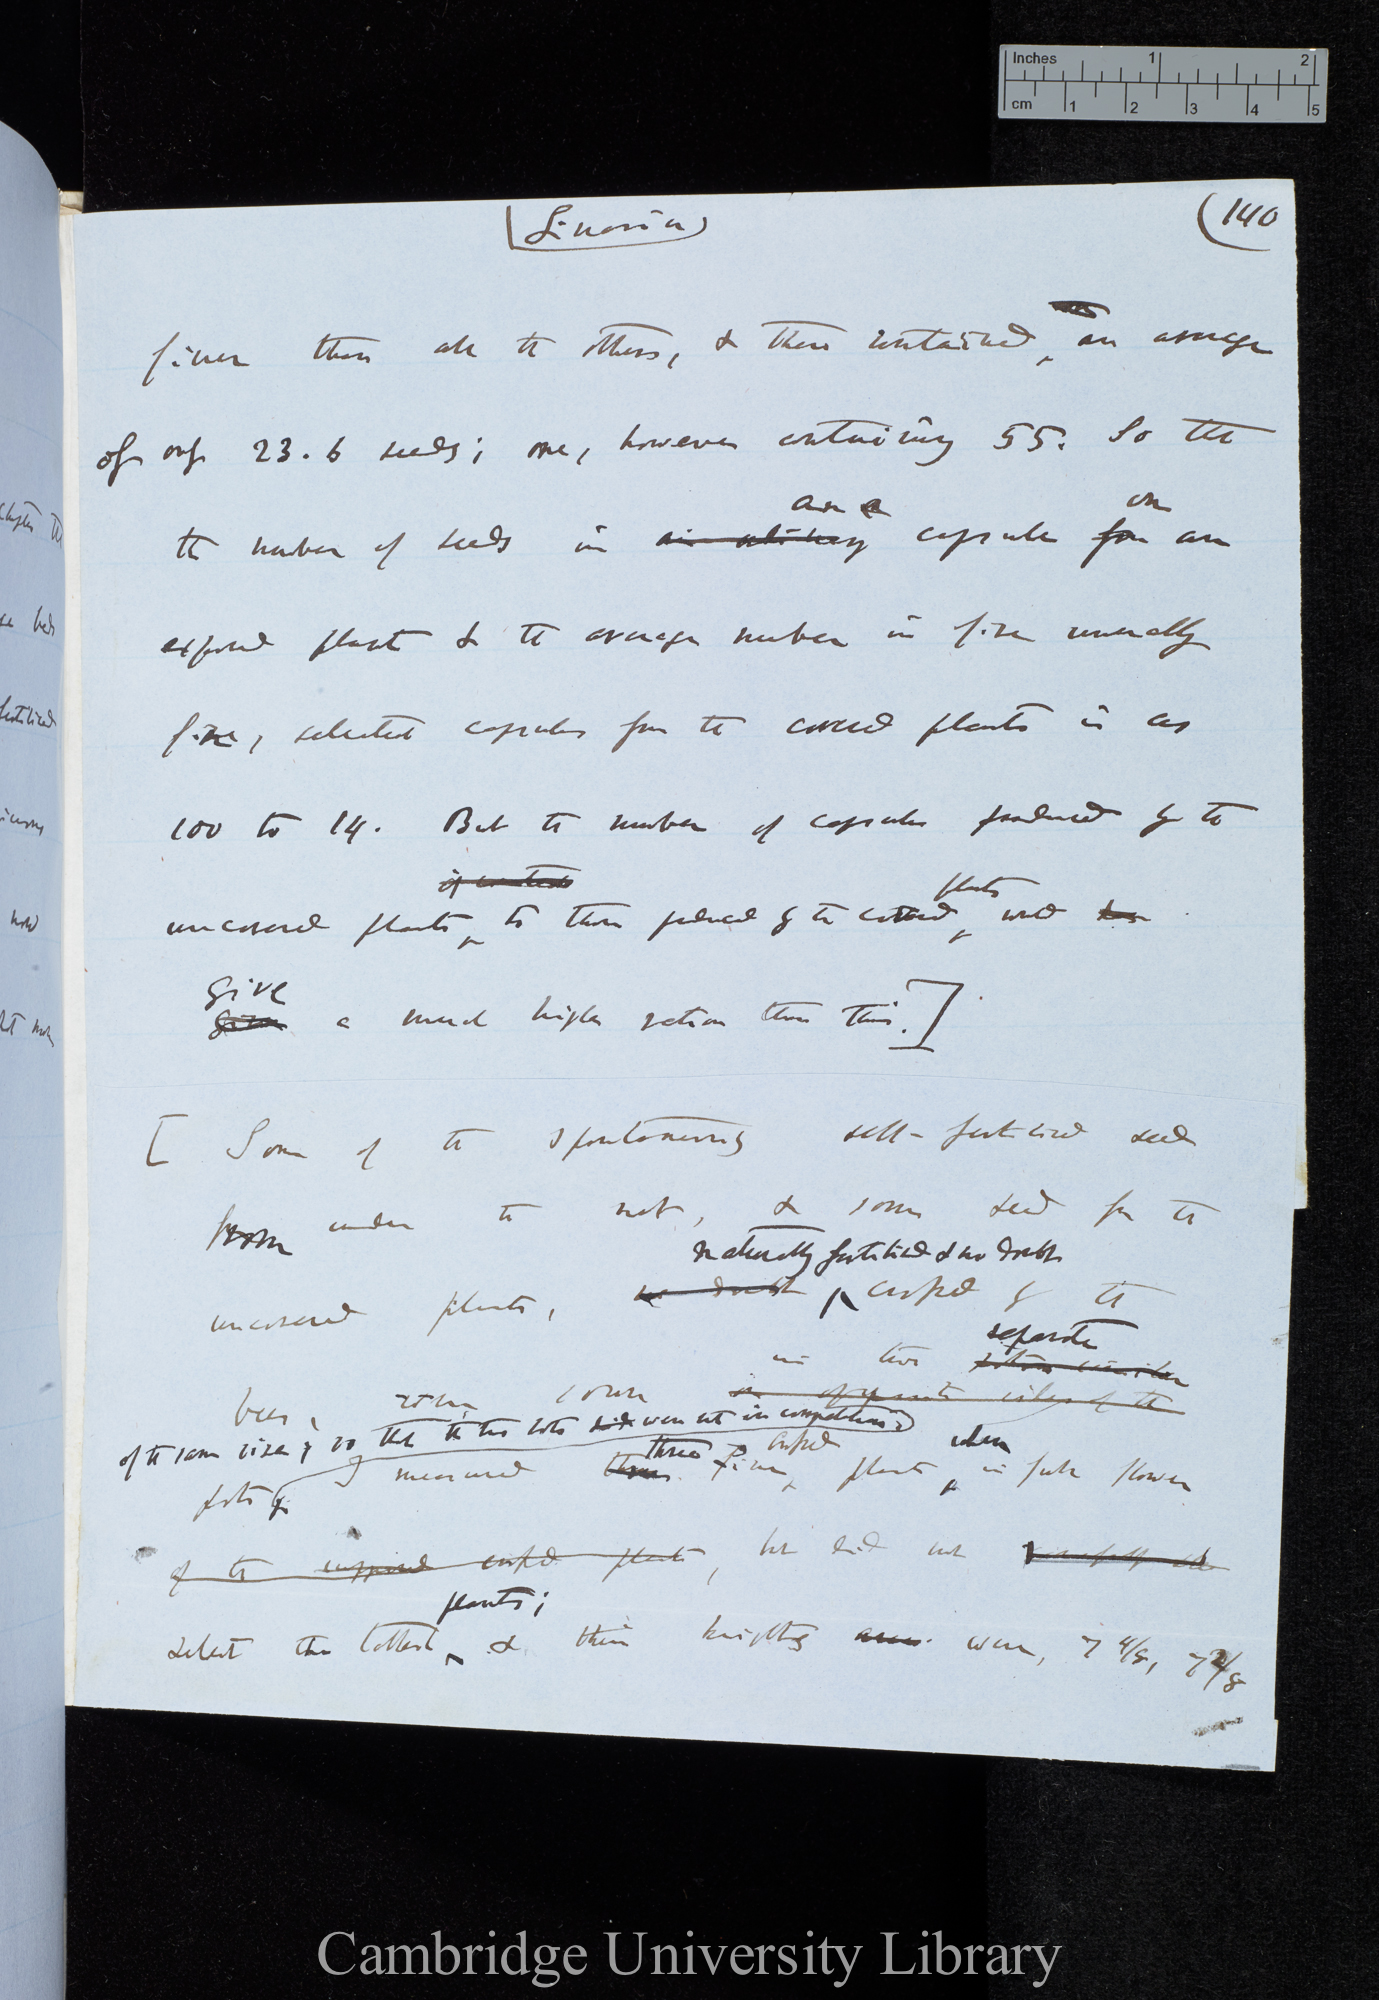 Inches 1 2
cm 1 2 3 4 5
(Linaria)
(140
finer than all the others, & these contained an average
of only 23.6 seeds; one, however containing 55. So the
the number of seeds in
an
capsule
on
an
exposed plant & the average number in fine unusually
fine, selected capsules from the covered plants is as
100 to 14. But the number of capsules produced by the
uncovered plants, to those produced by the covered
plants
would
give
a much higher ration than this.]
[ Some of the spontaneously self-fertilised seed
from under the net, & some seed from the
naturally fertilised & no doubt
uncovered plants, no doubt crossed by the
separate
in two
bees, were sown in opposite sides of the
of the same size; so that the two lots did were not in competition;
three
crossed
when
pots I measured fine plants in full flower
of the supposed crossed plants, but did not
plants;
select the tallest & their heights were, 7 4/8, 7 2/8
fertilised
Cambridge University Library